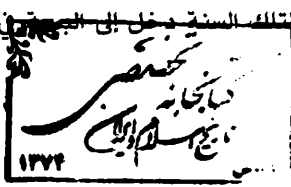 لتلك السنة دخل إلى
كتابخانه تخصصی
تاریخ اسلام و ایران
۱۳۷۴